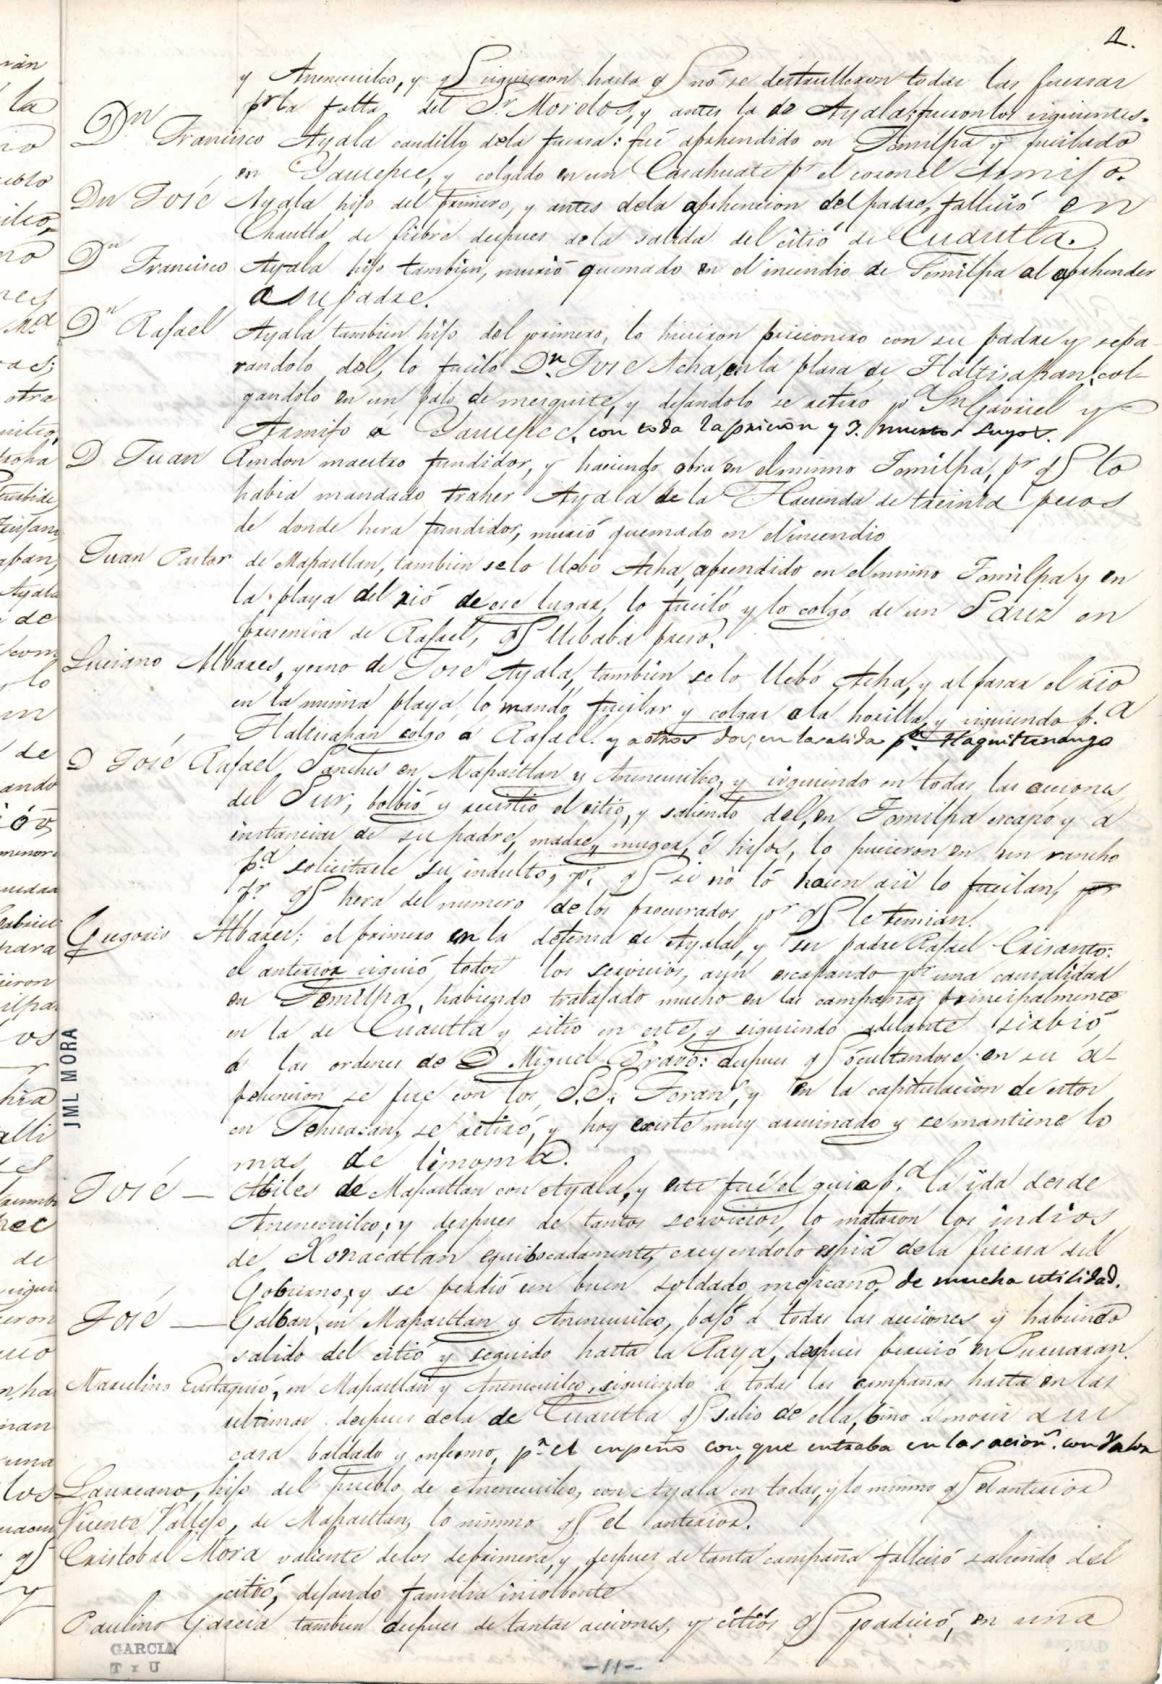 4.
y Anenecuilco, y q̃ siguieron hasta q̃ nó se destrulleron todas las fuersas
pr la falta del Sr Morelos, y antes la de Ayala: fueron los siguientes.
Dn Francisco Ayala caudillo dela fuersa: fué aprhendido en Temilpa y fucilado
en Yautepec, y colgado en un Casahuate pr el coronel Armijo.
Dn José Ayala hijo del primero, y antes dela aprhencion del padre, fallició en
Chautla de fiebre despues dela salida del citió de Cuautla.
Dn Francisco Ayala hijo tambien, murió quemado en el incendio de Temilpa al aprhender
a su padre.
Dn Rafael Ayala tambien hijo del primero, lo hicieron pricionero con su padre y sepa-
randolo del, lo fucilo Dn José Acha, en la plasa de Tlaltisapan, col-
gandolo en un palo de mesquite, y dejandolo se retiro pa Sn Gavriel y
Armijo á Yautepec, con toda la pricion y 3. muertos suyos.
D Juan Rendon maestro fundidor, y haciendo obra en el mismo Temilpa, pr q̃ lo
habia mandado traher Ayala de la Hacienda de treinta pesos
de donde hera fundidor, murió quemado en el incendio
Juan Pastor de Mapastlan, tambien se lo llebó Acha, aprendido en el mismo Temilpa y en
la playa del rió de ese lugar, lo fuciló y lo colgó de un Sauz en
precencia de Rafael, q̃ llebaba preso.
Luciano Albares, yerno de José Ayala, tambien se lo llebó Acha, y al pasar el rio
en la misma playa, lo mandó fucilar y colgar ala horilla, y siguiendo pa
Tlaltisapan colgó á Rafael. y a otros dos, en la salida pa Tlaquiltenango
D José Rafael Sanches en Mapastlan y Anenecuilco, y siguiendo en todas las acciones
del Sur, bolbió y recistio el citio, y saliendo del, en Temilpa escapo y a
instancias de su padre, madre, muger, é hijos, lo pucieron en un rancho
pa solicitarle su indulto, pr q̃ si nó ló hacen asi lo fucilan, por
pr q̃ hera del numero de los procurados pr q̃ le temian.
Gregorio Albares; el primero en la defensa de Ayala, y su padre Rafael Crisanto:
el anterior siguió todos los servicios, aun escapando pr una casualidad
en Temilpa, habiendo trabajado mucho en las campañas principalmente
en la de Cuautla y sitio en este, y siguiendo adelante sirbió
á las ordenes de D Miguel Bravo: despues q̃ ócultandose en su a-
prhencion se fue con los S.S. Teran, y en la capitulacion de estos
en Tehuacan, se retiró, y hoy existe muy arruinado y se mantiene lo
mas de limosna.
José — Abiles de Mapastlan con Ayala, y este fué el guia pa la ida desde
Anenecuilco, y despues de tantos servicios, lo mataron los indios
de Xonacatlan equibocadamente, creyendolo espiá dela fuersa del
Gobierno, y se perdió un buen soldado mejicano, de mucha utilidad.
José — Galban, en Mapastlan y Anenecuilco, bajó á todas las acciones y habiendo
salido del citio y seguido hasta la Raya, despues pereció en Pururaran.
Marselino Eustaquió, en Mapastlan y Anenecuilco, siguiendo á todas las campañas hasta en las
ultimas despues dela de Cuautla q̃ salio de ella, bino á morir a su
casa baldado y enfermo, pr el enpeño con que entraba en las acions con valor
Laureano, hijo del pueblo de Anenecuilco, con Ayala en todas, y lo mismo q̃ el anterior
Vicente Vallejo, de Mapastlan, lo mismo q̃ el anterior.
Cristobal Mora valiente delos deprimera, y despues de tanta campaña fallició saliendo del
citió, dejando familia insolbente
Paulino Garcia tambien despues de tantas acciones, y citiós q̃ padició, en una
JML MORA
GARCIA
T x U
-11-